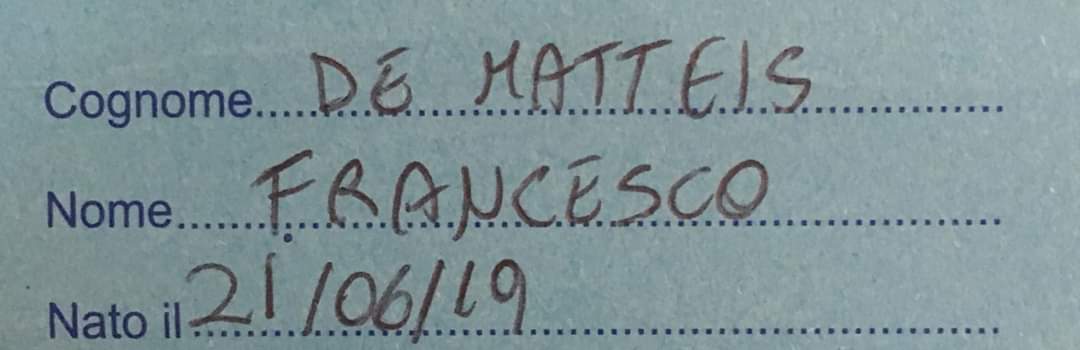 Cognome DE MATTEIS
Nome FRANCESCO
Nato il 21/06/19